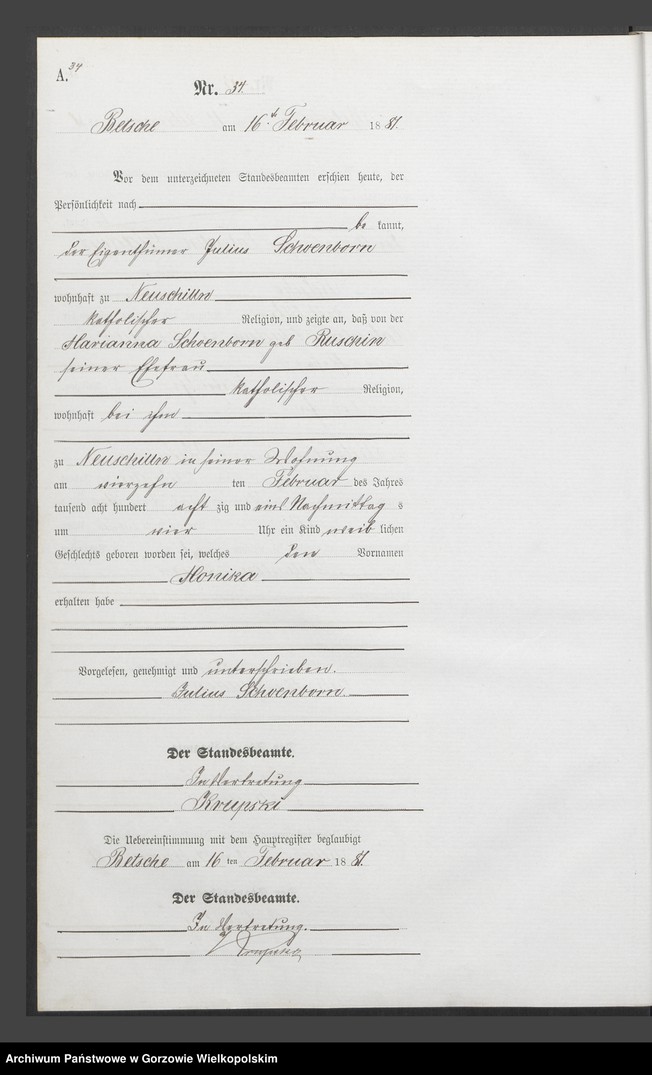 A. 34
Nr. 34.
Betsche am 16. ten Februar 1881.
Vor dem unterzeichneten Standesbeamten erschien heute, der
Persönlichkeit nach
be kannt,
der Eigenthümer Julius Schoenborn
wohnhaft zu Neuschilln
katholischer Religion, und zeigte an, daß von der
Marianna Schoenborn geb Ruschin
seiner Ehefrau
katholischer Religion,
wohnhaft bei ihm
zu Neuschilln in seiner Wohnung
am vierzehn ten Februar des Jahres
tausend acht hundert acht zig und eins Nachmittag s
um vier Uhr ein Kind weib lichen
Geschlechts geboren worden sei, welches den Vornamen
Monika
erhalten habe
Vorgelesen, genehmigt und unterschrieben.
Julius Schoenborn.
Der Standesbeamte.
In Vertretung
Krupski
Die Uebereinstimmung mit dem Hauptregister beglaubigt
Betsche am 16 ten Februar 1881.
Der Standesbeamte.
In Vertretung.
Krupski
Archiwum Państwowe w Gorzowie Wielkopolskim